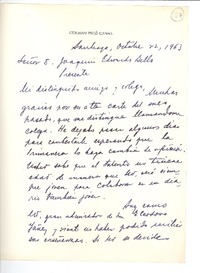 GERMAN PICÓ CAÑAS
Santiago, Octubre 22, 1963
Señor D. Joaquin Edwards Bello
Presente
Mi distinguido amigo y colega: Muchas
gracias por su carta del mes
pasado, que me distingue llamandome
colega. He dejado pasar algunos dias
para contestarle esperando que la
Primavera lo haga cambiar de opinión.
Usted sabe que el talento no tiene
edad de manera que Ud. será siem
pre joven para colaborar en un dia
rio tambien joven.
Soy como
Ud. gran admirador de Don Eliodoro
Yáñez y siento no haber podido recibir
sus enseñanzas. Si Ud. se decide